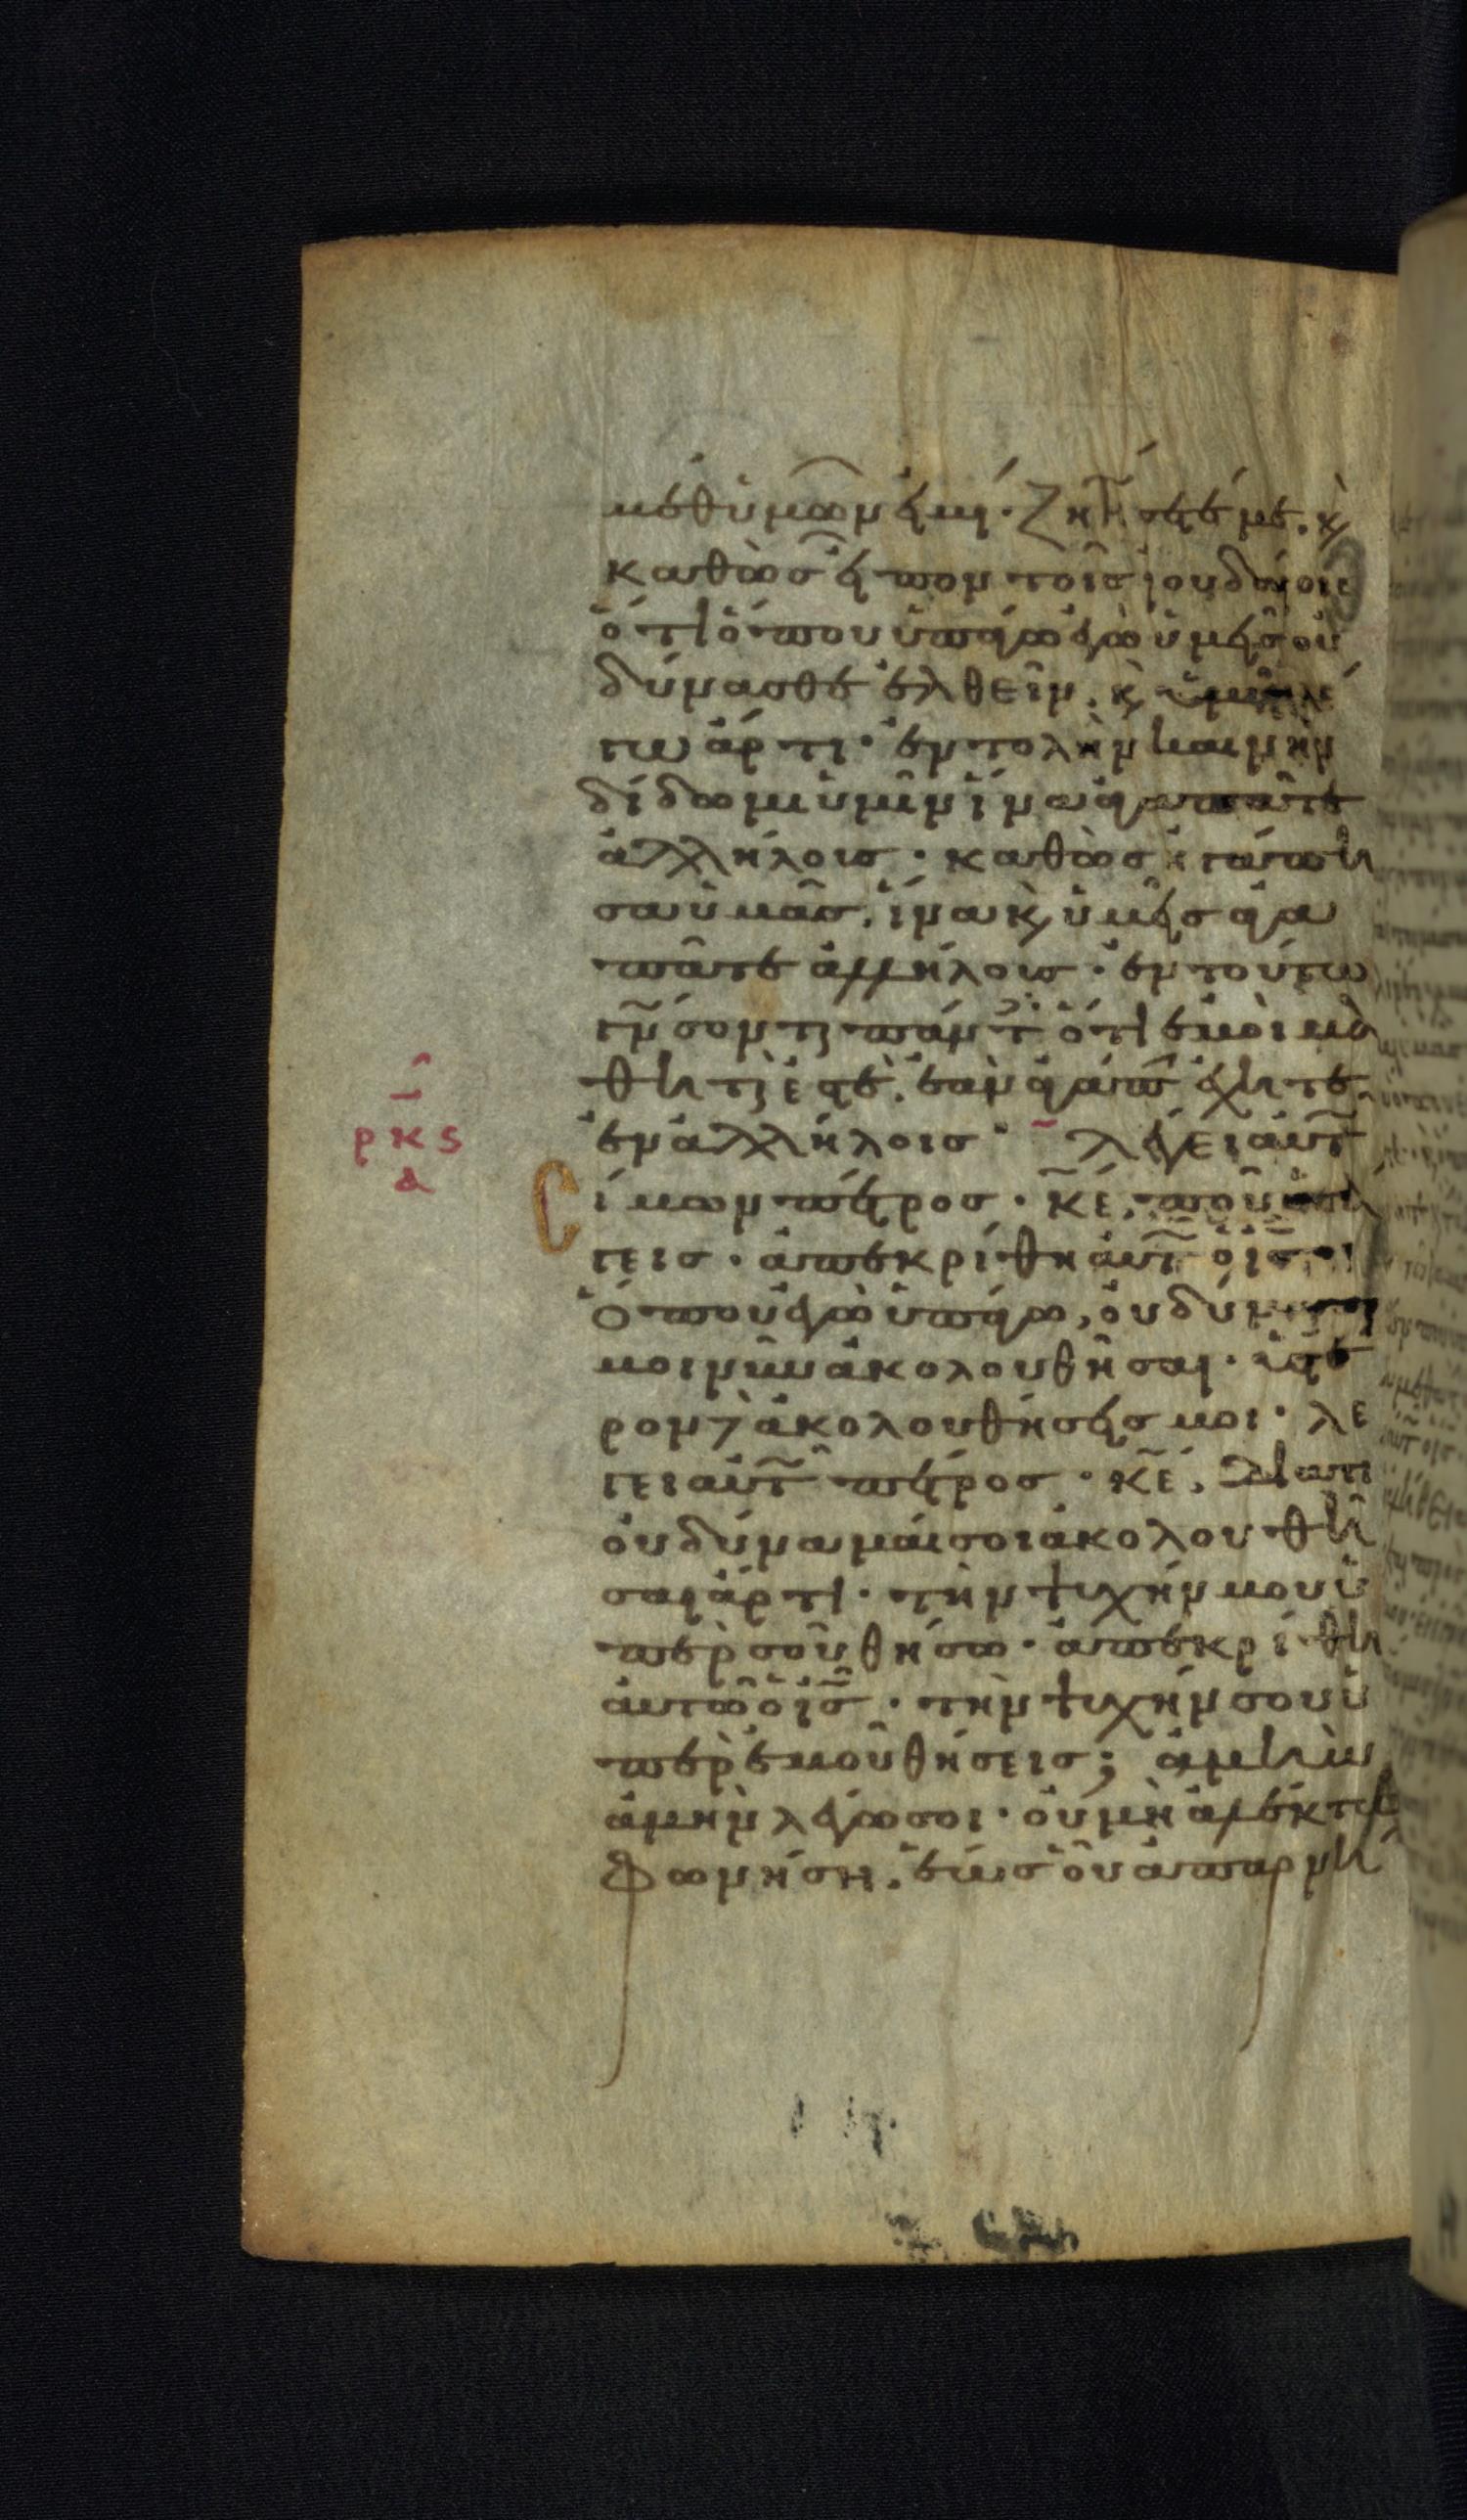 μεθ' ὑμῶν εἰμι· ζητήσετέ με. κ̀
καθὼσ εἶπον τοῖσ ἰουδαίοις
ὅτι ὅπου ὑπάγω ἐγὼ ὑμεῖσ οὐ
δύνασθε ἐλθεῖν. κ̀ ὑμῖν λέ
γω ἄρτι· ἐντολὴν καινὴν
δίδωμι ὑμῖν ἵνα ἀγαπᾶτε
ἀλλήλουσ· καθὼσ ἠγάπη
σα ὑμᾶσ, ἵνα κ̀ ὑμεῖσ ἀγα
πᾶτε ἀλλήλουσ· ἐν τούτω
γνώσονται πάντ ὅτι ἐμοὶ μα
θηταί ἐστέ. ἐὰν ἀγάπ ἔχητε
ἐν ἀλλήλοισ· λέγει αὐτ
Σίμων πέτροσ· κ̅ε̅, ποῦ ὑπά
γεισ· ἀπεκρίθη αὐτ ὁ ι̅σ̅·
Ὅπου ἐγὼ ὑπάγω, οὐ δύνασαί
μοι νῦν ἀκολουθῆσαι· ὕστε
ρον δὲ ἀκολουθήσεισ μοι· λέ
γει αὐτ πέτροσ· κ̅ε̅, διατί
οὐ δύναμαί σοι ἀκολουθῆ
σαι ἄρτι· τὴν ψυχήν μου ὑ
πὲρ σοῦ θήσω· ἀπεκρίθη
αὐτῶ ὁ ι̅σ̅· τὴν ψυχήν σου ὑ
πὲρ ἐμοῦ θήσεισ; ἀμὴν
ἀμὴν λέγω σοι· οὐ μὴ ἀλέκτωρ
φωνήση. ἕωσ οὗ ἀπαρνή
ρκϛ
α